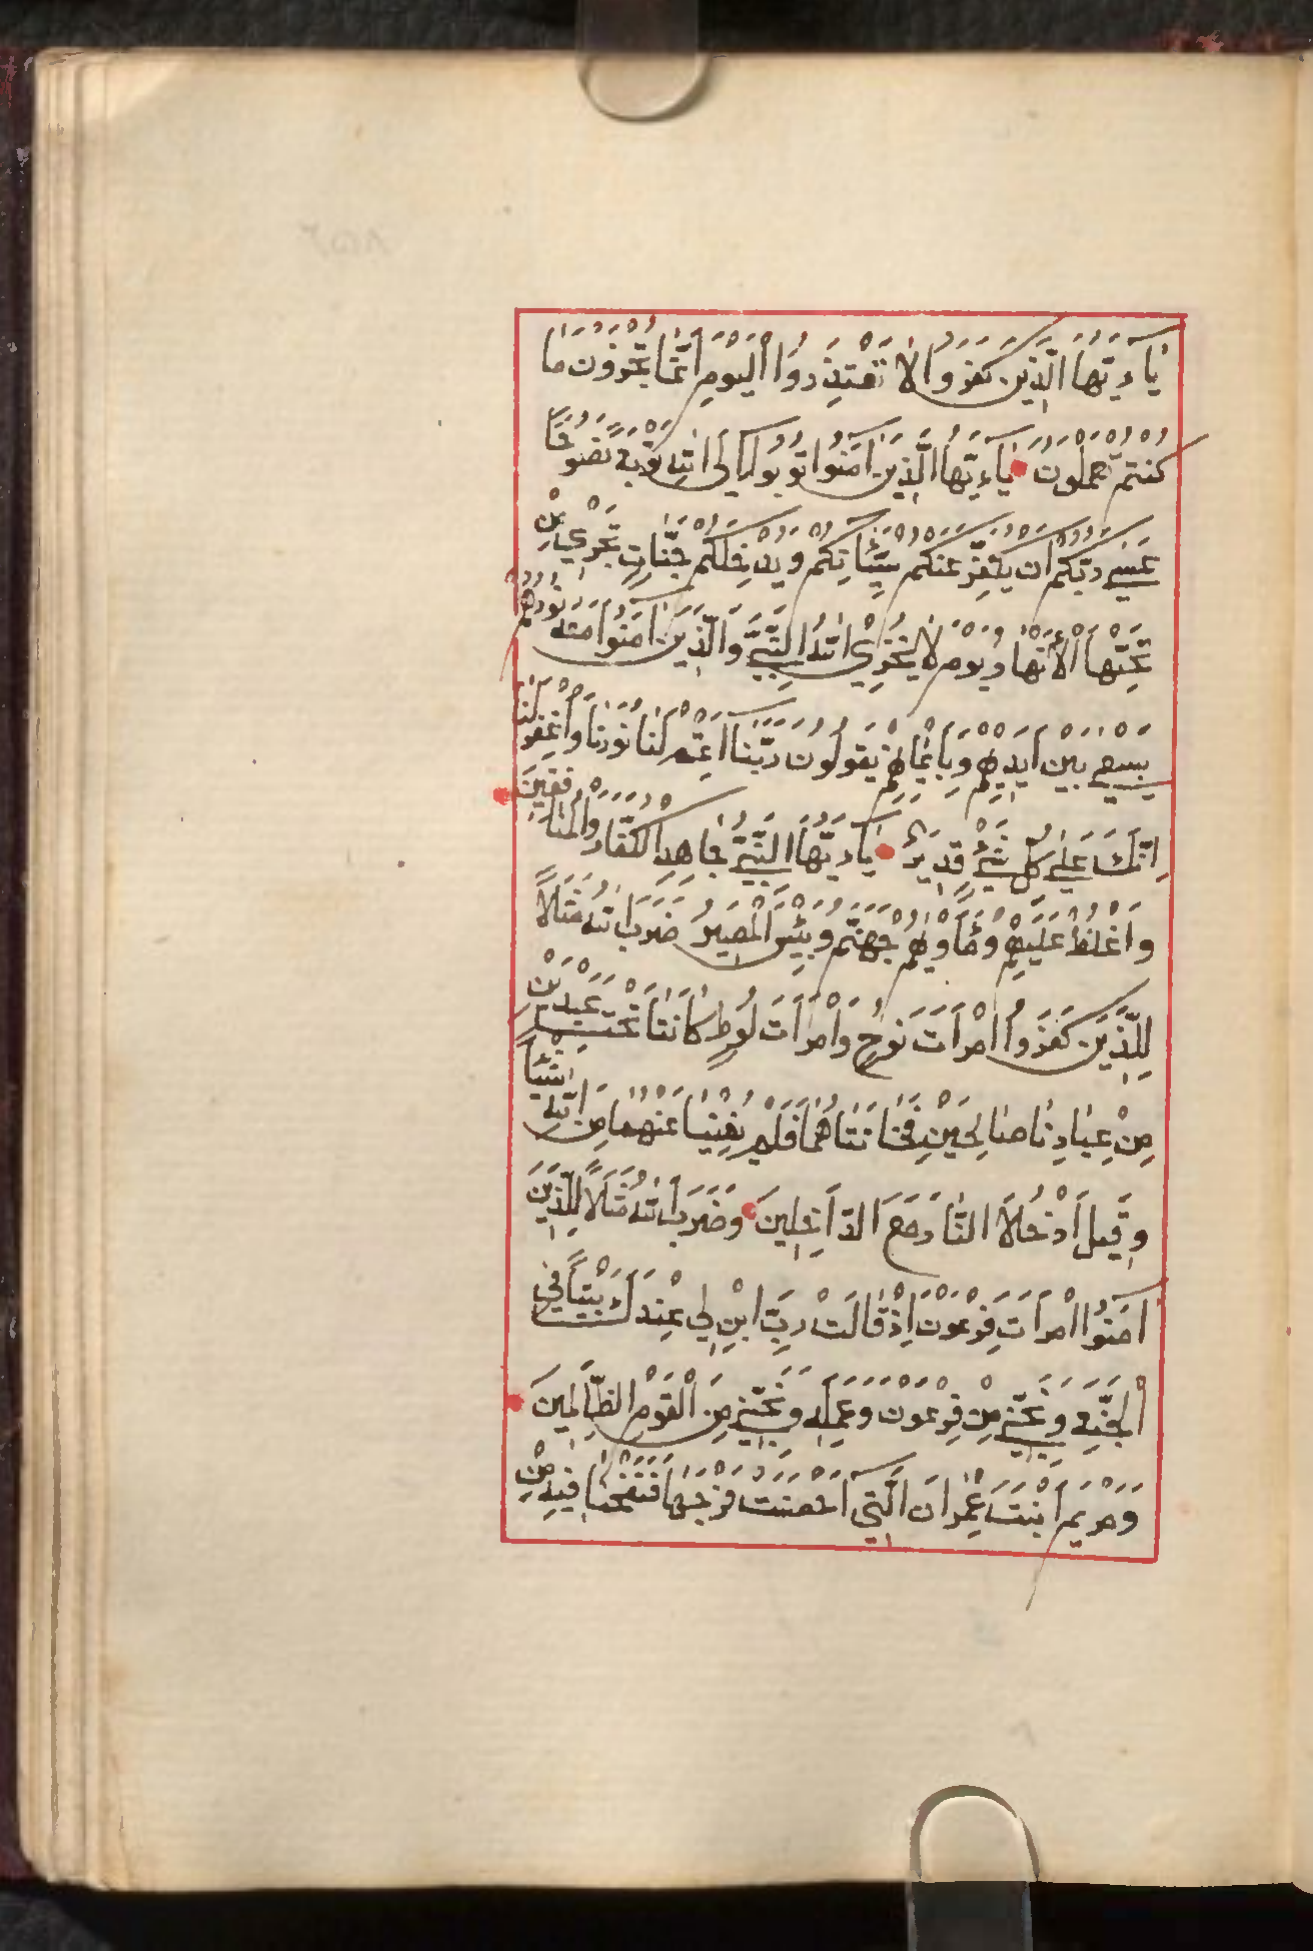 يَاءَيُّهَا الَّذِينَ كَفَرُوا لَا تَعْتَذِرُوا الْيَوْمَ اِنَّمَا تُجْزَوْنَ مَا
كُنْتُمْ تَعْمَلُونَ يَاءَيُّهَا الَّذِينَ اٰمَنُوا تُوبُوا اِلَى اللّٰهِ تَوْبَةً نَصُوحًا
عَسٰى رَبُّكُمْ اَنْ يُكَفِّرَ عَنْكُمْ سَيِّئَاتِكُمْ وَيُدْخِلَكُمْ جَنَّاتٍ تَجْرِي مِنْ
تَحْتِهَا الْأَنْهَارُ يَوْمَ لَا يُخْزِي اللّٰهُ النَّبِيَّ وَالَّذِينَ اٰمَنُوا مَعَهُ نُورُهُمْ
يَسْعٰى بَيْنَ اَيْدِيهِمْ وَبِاَيْمَانِهِمْ يَقُولُونَ رَبَّنَا اَتْمِمْ لَنَا نُورَنَا وَاغْفِرْ لَنَا
اِنَّكَ عَلٰى كُلِّ شَيْءٍ قَدِيرٌ يَاءَيُّهَا النَّبِيُّ جَاهِدِ الْكُفَّارَ وَالْمُنَافِقِينَ
وَاغْلُظْ عَلَيْهِمْ وَمَأْوٰيهُمْ جَهَنَّمُ وَبِئْسَ الْمَصِيرُ ضَرَبَ اللّٰهُ مَثَلًا
لِلَّذِينَ كَفَرُوا امْرَأَتَ نُوحٍ وَامْرَأَتَ لُوطٍ كَانَتَا تَحْتَ عَبْدَيْنِ
مِنْ عِبَادِنَا صَالِحَيْنِ فَخَانَتَاهُمَا فَلَمْ يُغْنِيَا عَنْهُمَا مِنَ اللّٰهِ شَيْئًا
وَقِيلَ ادْخُلَا النَّارَ مَعَ الدَّاخِلِينَ وَضَرَبَ اللّٰهُ مَثَلًا لِلَّذِينَ
اٰمَنُوا امْرَأَتَ فِرْعَوْنَ اِذْ قَالَتْ رَبِّ ابْنِ لِي عِنْدَكَ بَيْتًا فِي
الْجَنَّةِ وَنَجِّنِي مِنْ فِرْعَوْنَ وَعَمَلِهِ وَنَجِّنِي مِنَ الْقَوْمِ الظَّالِمِينَ
وَمَرْيَمَ ابْنَتَ عِمْرَانَ الَّتِي اَحْصَنَتْ فَرْجَهَا فَنَفَخْنَا فِيهِ مِنْ